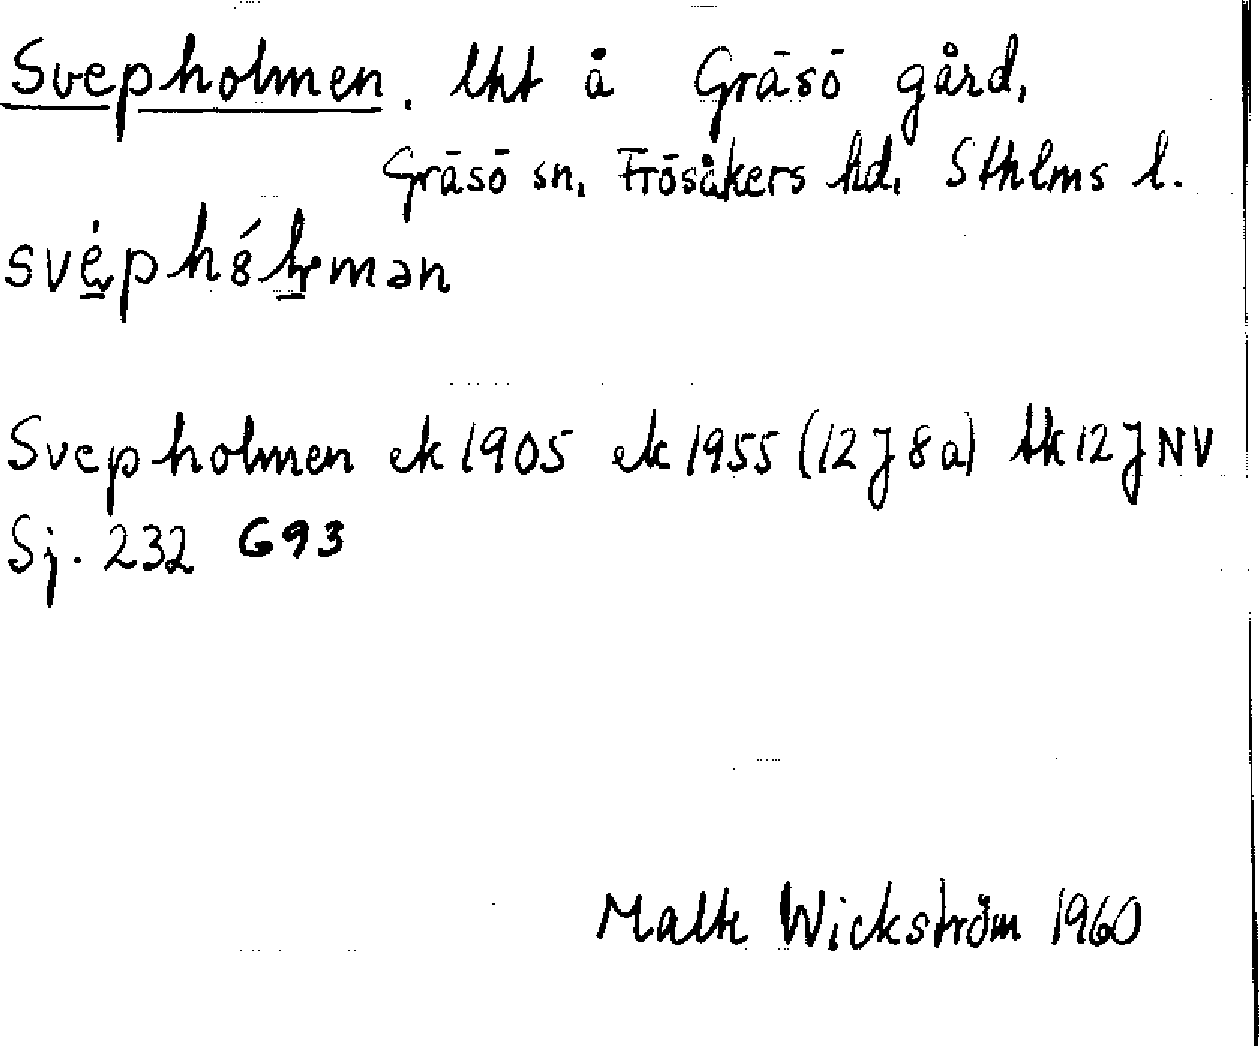 Svepholmen. lht å Gräsö gård,
Gräsö sn, Frösåkers hd, Sthlms l.
Svepholmen ek 1905 ek 1955 (12 J 8 a) tk 12 J NV
Sj. 232 G93
Malte Wickström 1960